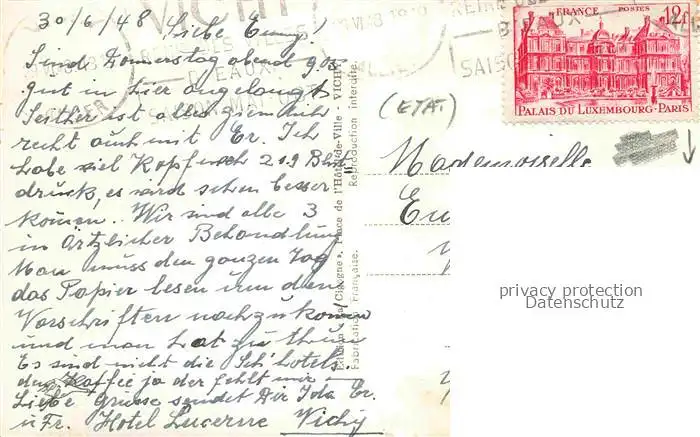 30/6/48 Liebe Emmy!
Sind Donnerstag abend 9.02
gut in hier angelangt
Seither ist alles ziemlich
recht auch mit Er. Ich
habe viel Kopfweh 219 Blut
druck, es wird schon besser
kommen. Wir sind alle 3
in Örtzlicher Behandlung
Man muss den ganzen Tag
das Papier lesen um den
Vorschriften nachzukommen
und man hat zu thun
Es sind nicht die Sch'hotels
den Kaffee ja der fehlt mir
Liebe Grüsse sendet Dir Ida Er.
u Fr. Hotel Lucerne Vichy
Place de l'Hôtel-de-Ville - VICHY
Reproduction interdite.
Fabrication Française.
FRANCE POSTES 12F
PALAIS DU LUXEMBOURG-PARIS
(ETAT.)
Mademoiselle
privacy protection
Datenschutz